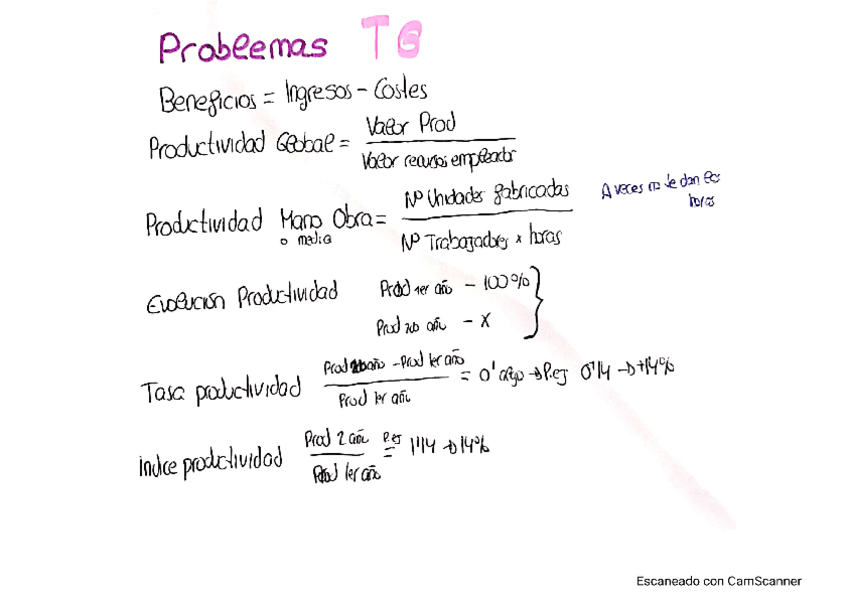 Problemas T6
Beneficios = Ingresos - Costes
Productividad Global = Valor Prod
Valor recursos empleados
Productividad Mano Obra = Nº Unidades fabricadas
o media
Nº Trabajadores x horas
A veces no te dan las
horas
Evolución Productividad Prod 1er año - 100%
Prod 2do año - X
Tasa productividad Prod 2do año - Prod 1er año = 0'algo → P.ej 0'14 → +14%
Prod 1er año
Indice productividad Prod 2 año P.ej = 1'14 → 14%
Prod 1er año
Escaneado con CamScanner